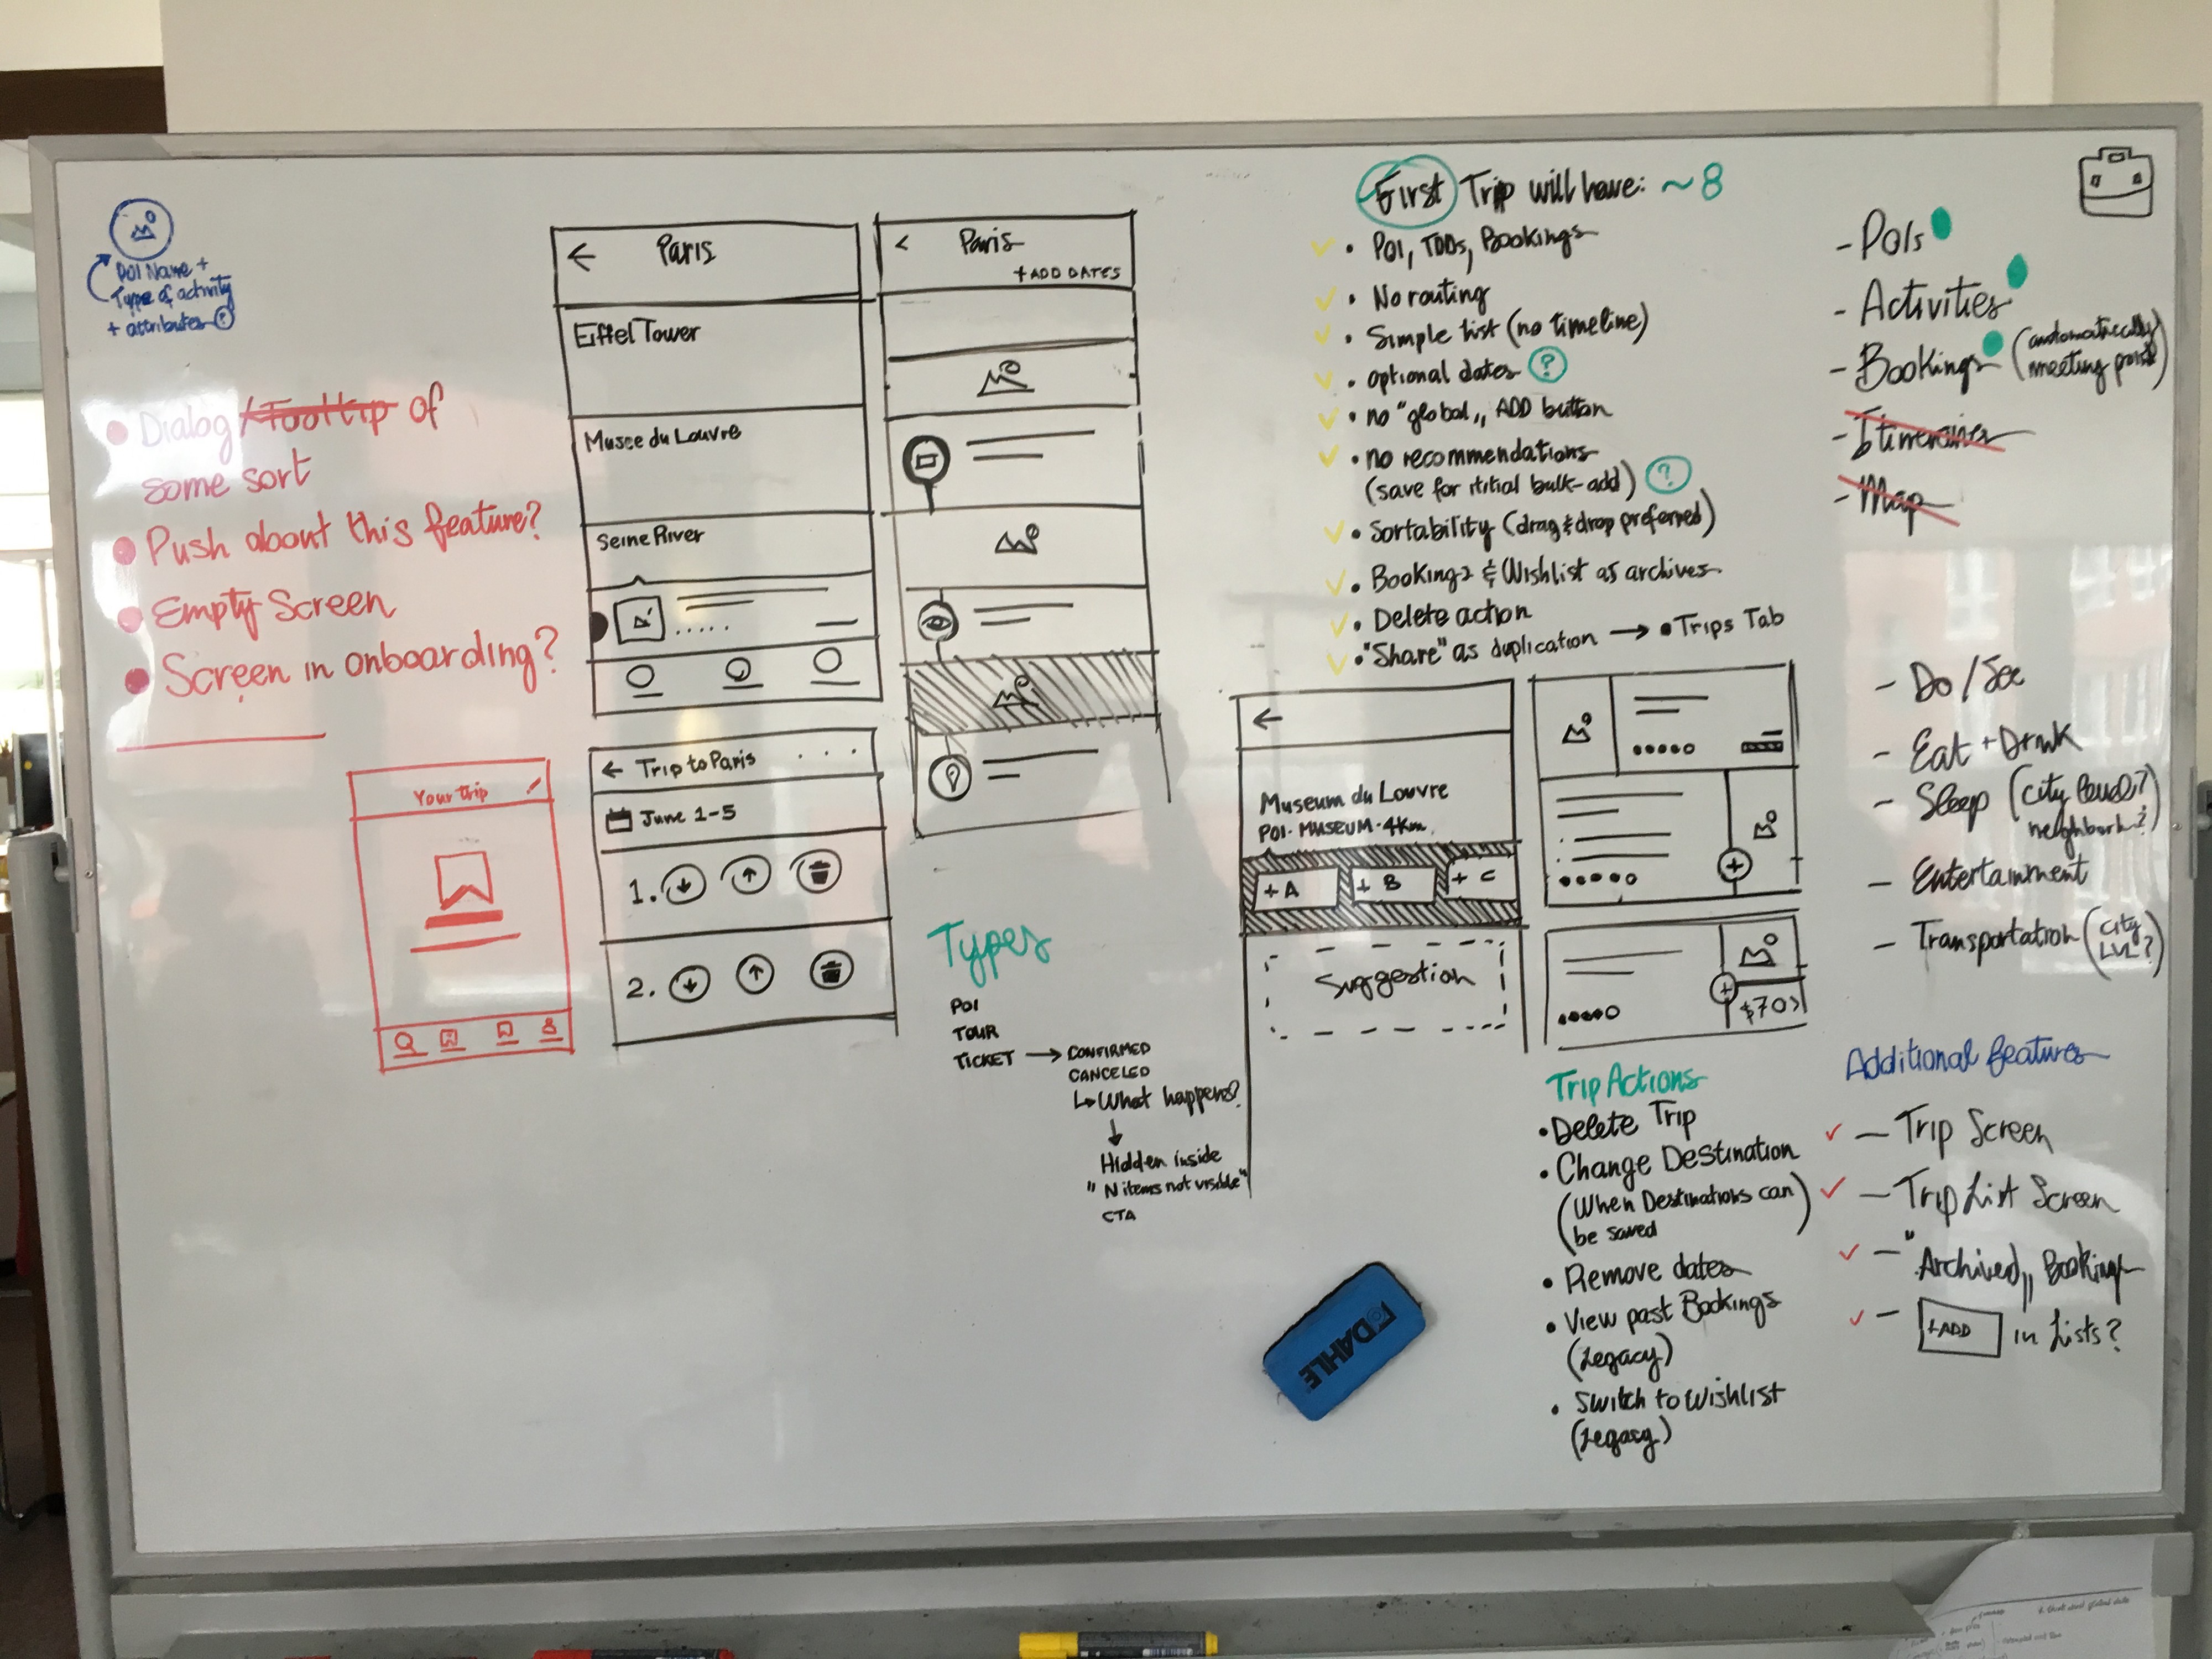 POI Name +
Type of activity
+ attributes ?
Dialog /Tooltip of
some sort
Push about this feature?
Empty Screen
Screen in onboarding?
Your trip
← Paris
Eiffel Tower
Musee du Louvre
Seine River
< Paris
+ ADD DATES
← Trip to Paris . . .
June 1-5
1.
2.
Types
POI
TOUR
TICKET → CONFIRMED
CANCELED
↳ What happens?
↓
Hidden inside
"N items not visible"
CTA
First Trip will have: ~8
• POI, TDDs, Bookings
• No routing
• Simple list (no timeline)
• optional dates ?
• no "global„ ADD button
• no recommendations
(save for initial bulk-add) ?
• Sortability (drag & drop preferred)
• Bookings & Wishlist as archives
• Delete action
• "Share" as duplication → • Trips Tab
←
Museum du Louvre
POI · MUSEUM · 4Km
+ A + B + C
Suggestion
$70>
Trip Actions
• Delete Trip
• Change Destination
(When Destinations can
be saved)
• Remove dates
• View past Bookings
(Legacy)
• Switch to Wishlist
(Legacy)
- POIs
- Activities
- Bookings (automatically
meeting point)
- Itineraries
- Map
- Do / See
- Eat + Drink
- Sleep (city level?
neighborh.?)
- Entertainment
- Transportation (City
LVL?)
Additional features
✓ — Trip Screen
✓ — Trip List Screen
✓ — "Archived„ Bookings
✓ — +ADD in Lists?
DAHLE